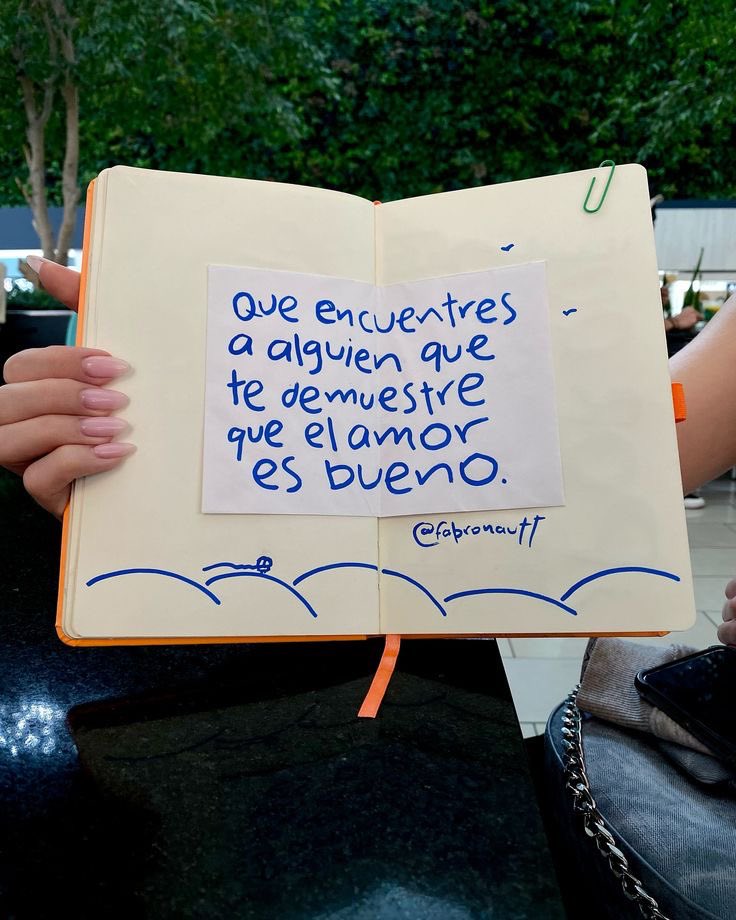 Que encuentres
a alguien que
te demuestre
que el amor
es bueno.
@fabronautt